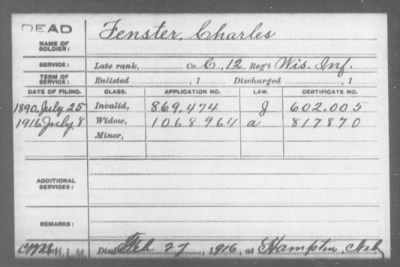 DEAD
NAME OF SOLDIER: Fenster, Charles
SERVICE: Late rank, Co. C, 12 Reg't Wis. Inf.
TERM OF SERVICE: Enlisted , 1 Discharged , 1
DATE OF FILING. CLASS. APPLICATION NO. LAW. CERTIFICATE NO.
1890, July 25 Invalid, 869,474 J 602,005
1916 July 8 Widow, 1068964 a 817870
Minor,
ADDITIONAL SERVICES:
REMARKS:
Died Feb 27, 1916, at Hampton, Neb